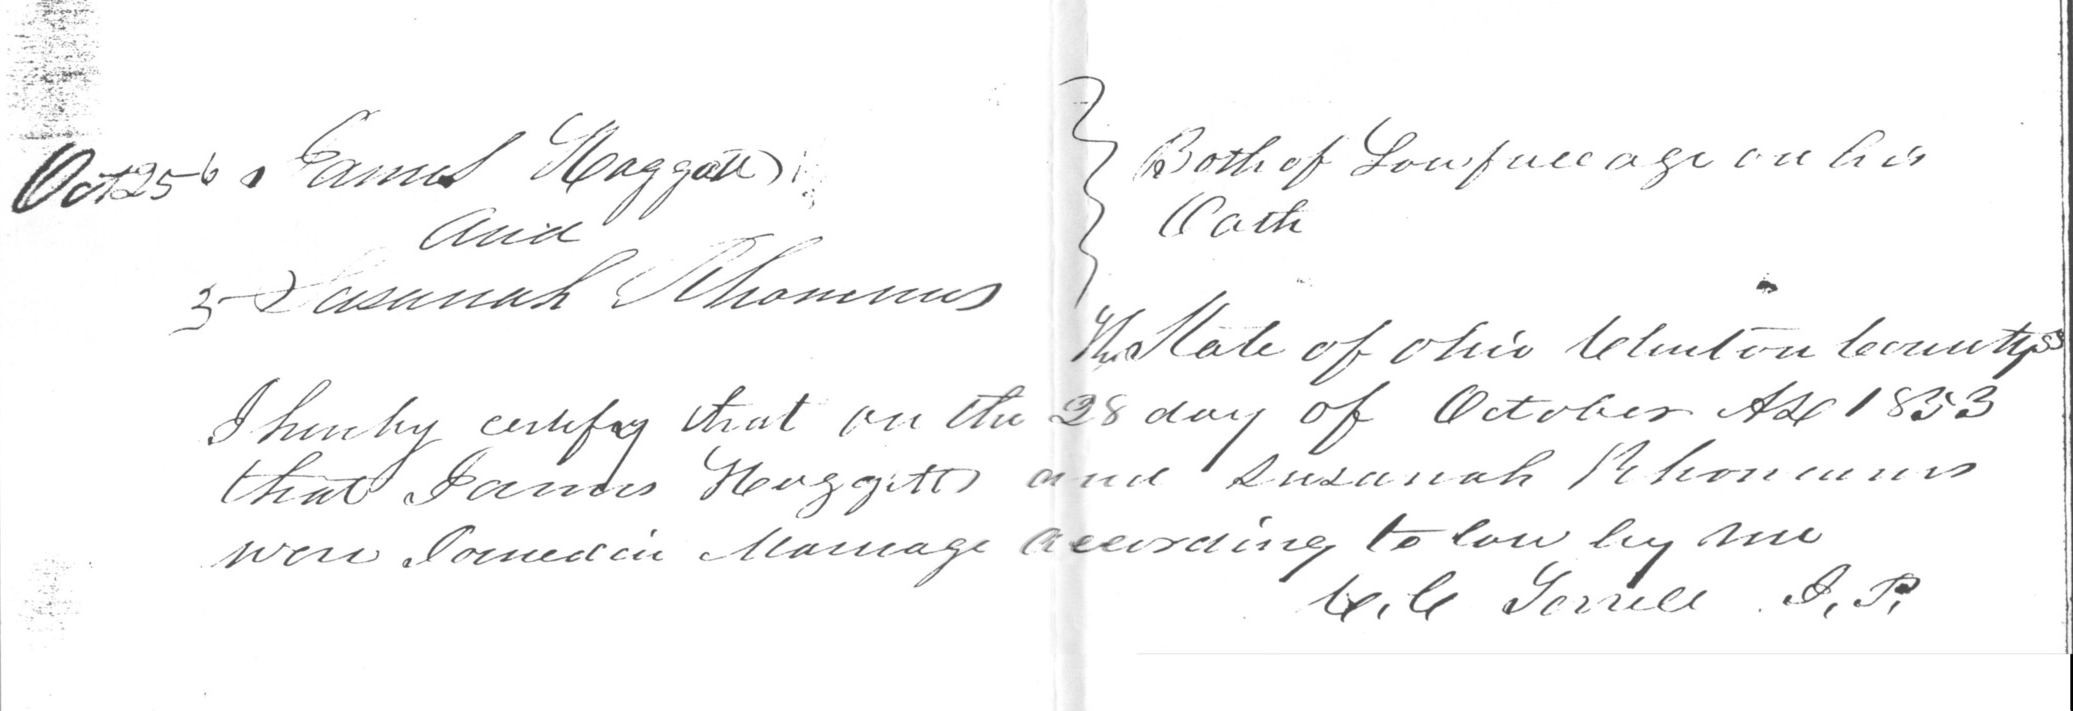 Oct 25 James Haggatt
and
Susanah Rhonemus
Both of Lawfull age on his
Oath
The State of Ohio Clinton County ss
I hereby certify that on the 28 day of October AD 1853
that James Haggitt and Susanah Rhonemus
were Joined in Marriage according to law by me
C, C Terrell J, P,